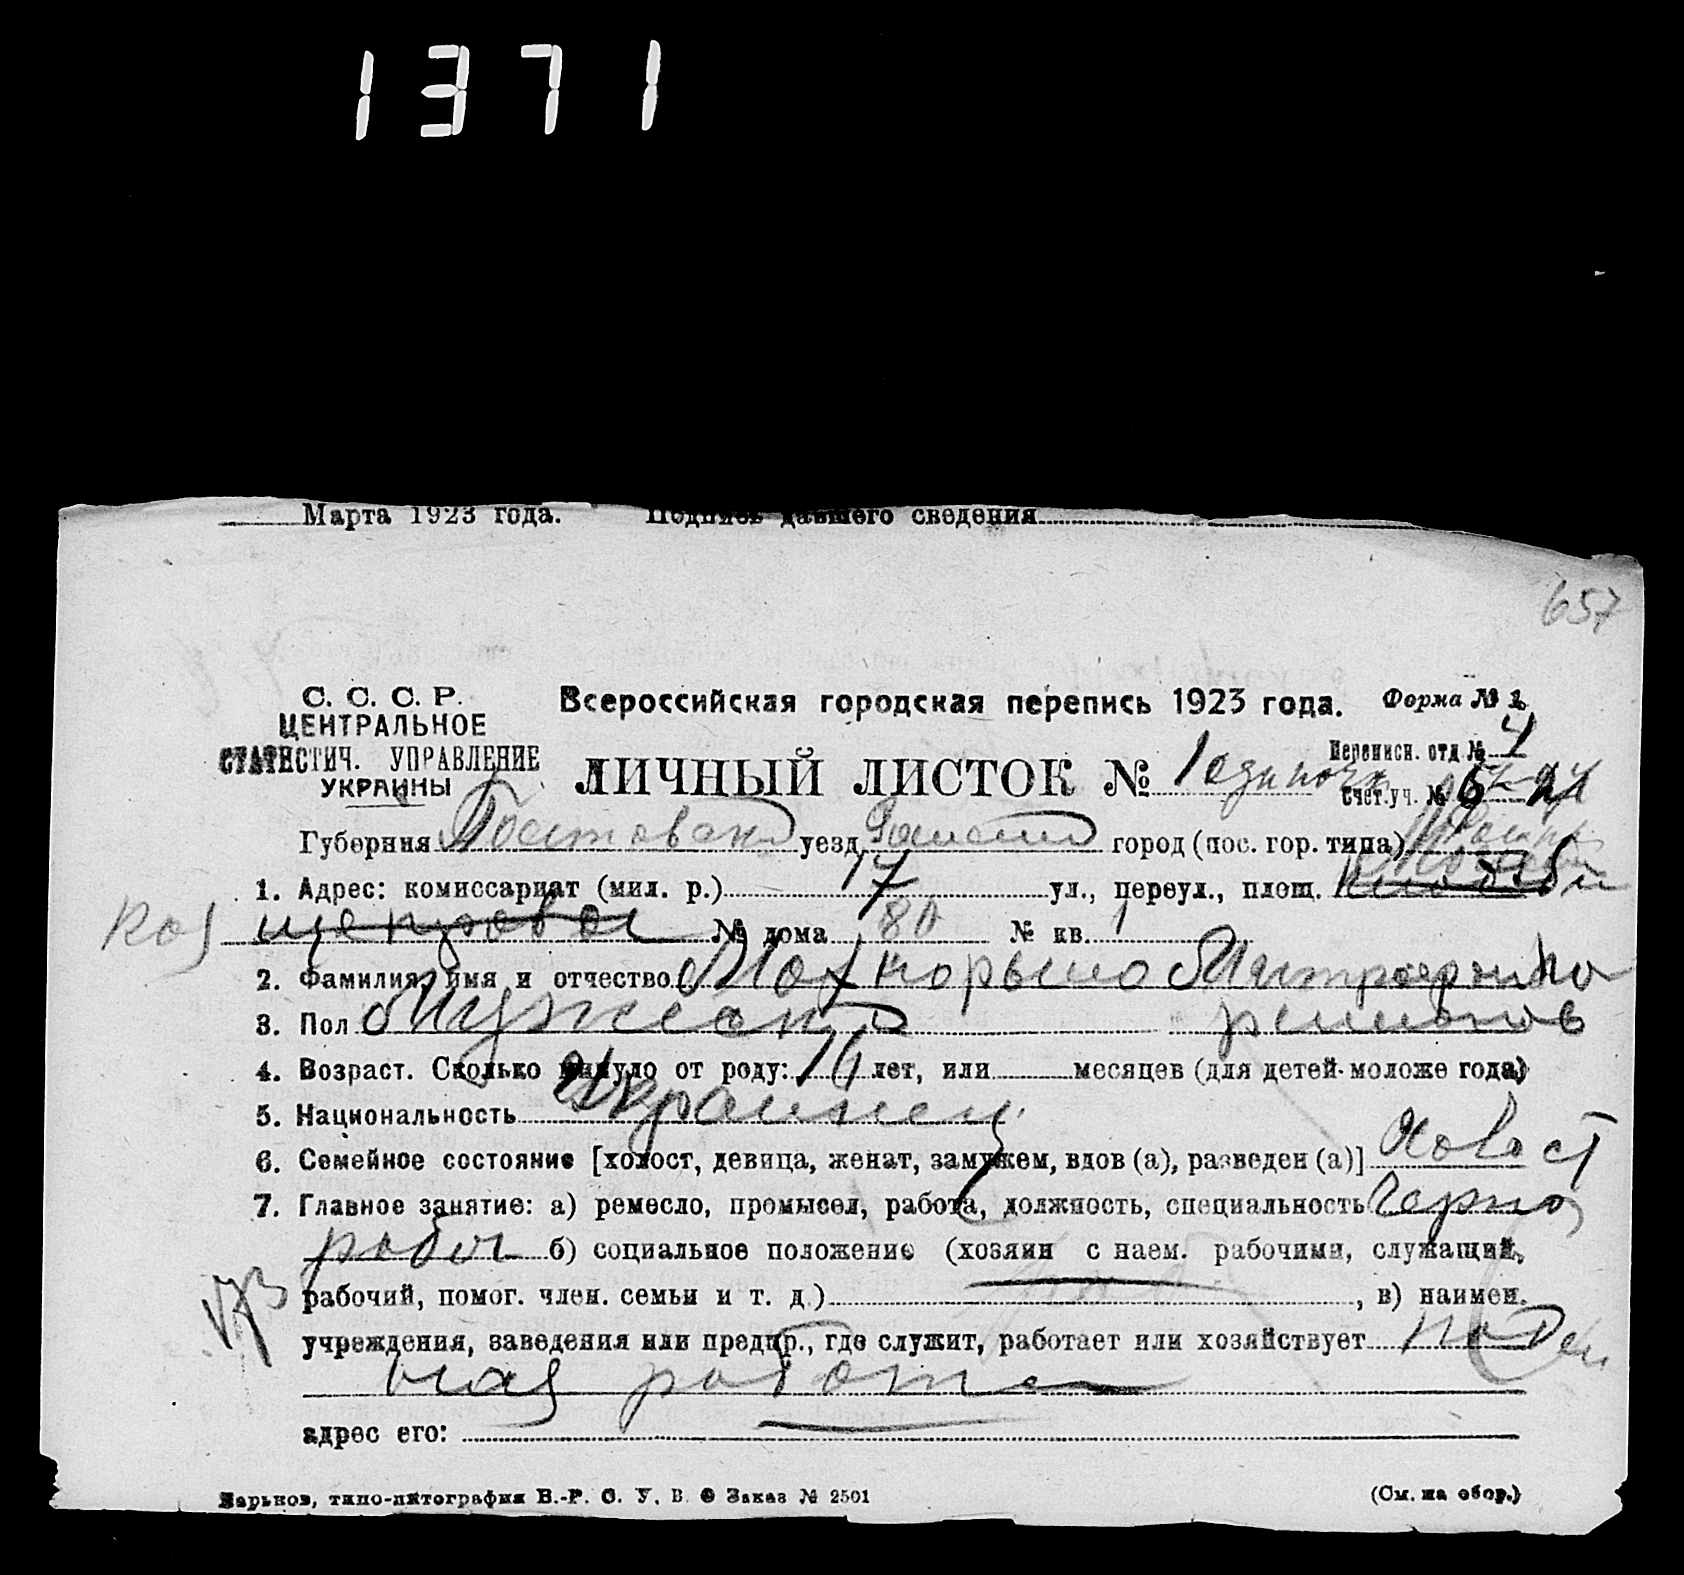 1371
Марта 1923 года. Подпись давшего сведения
657
С. С. С. Р.
ЦЕНТРАЛЬНОЕ
СТАТИСТИЧ. УПРАВЛЕНИЕ
УКРАИНЫ
Всероссийская городская перепись 1923 года. Форма № 1
Переписн. отд № 4
ЛИЧНЫЙ ЛИСТОК № 1 одиночк
Счет.уч. №
Губерния уезд город (пос. гор. типа)
1. Адрес: комиссариат (мил. р.) 17 ул., переул., площ.
№ дома 80 № кв. 1
2. Фамилия, имя и отчество Митрофан
3. Пол Мужской
4. Возраст. Сколько минуло от роду: 16 лет, или месяцев (для детей моложе года)
5. Национальность Украинец
6. Семейное состояние [холост, девица, женат, замужем, вдов (а), разведен (а)] Холост
7. Главное занятие: а) ремесло, промысел, работа, должность, специальность Черно
рабоч б) социальное положение (хозяин с наем. рабочими, служащий,
рабочий, помог. член. семьи и т. д.) , в) наимен.
учреждения, заведения или предпр., где служит, работает или хозяйствует поден
ная работа
адрес его:
Харьков, типо-литография В.-Р. С. У. В. О Заказ № 2501 (См. на обор.)